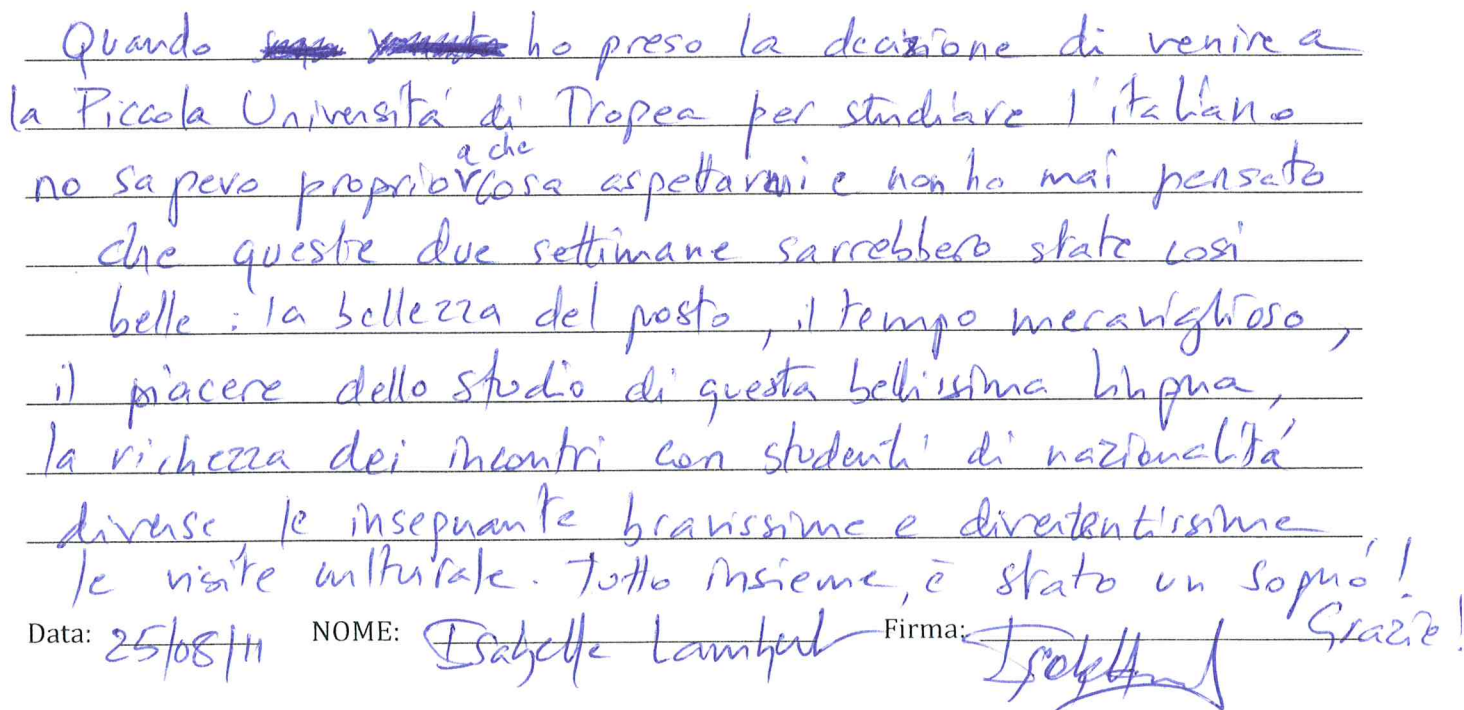 Quando ho preso la decizione di venire a
la Piccola Universitá di Tropea per studiare l'italiano
no sapevo proprio a che cosa aspettarmi e non ho mai pensato
che queste due settimane sarrebbero state cosi
belle : la bellezza del posto, il tempo meraviglioso,
il piacere dello studio di questa bellissima lingua,
la richezza dei incontri con studenti di nazionalitá
diverse, le insegnante bravissime e divertentissime,
le visite culturale. Tutto insieme, è stato un sogno!
Grazie!
Data: 25/08/11 NOME: Isabelle Lambert Firma: